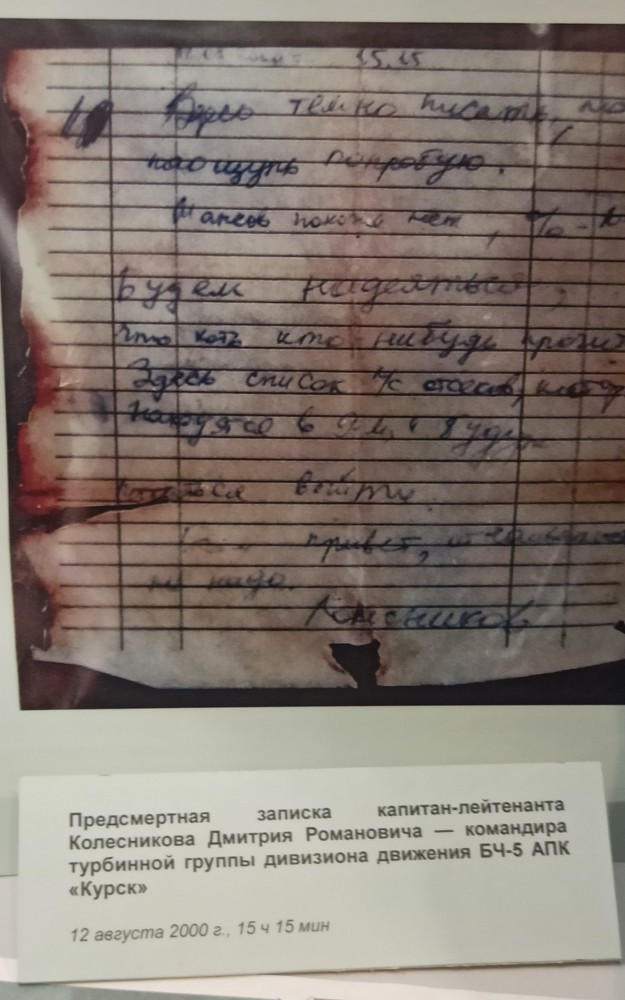 15.15
темно писать, но
наощупь попробую.
Шансов похоже нет, %
Будем надеяться,
что хоть кто-нибудь
Здесь список л/с отсеков,
находятся в 9-м и будут
выйти.
привет,
не надо.
Колесников
Предсмертная записка капитан-лейтенанта
Колесникова Дмитрия Романовича — командира
турбинной группы дивизиона движения БЧ-5 АПК
«Курск»
12 августа 2000 г., 15 ч 15 мин